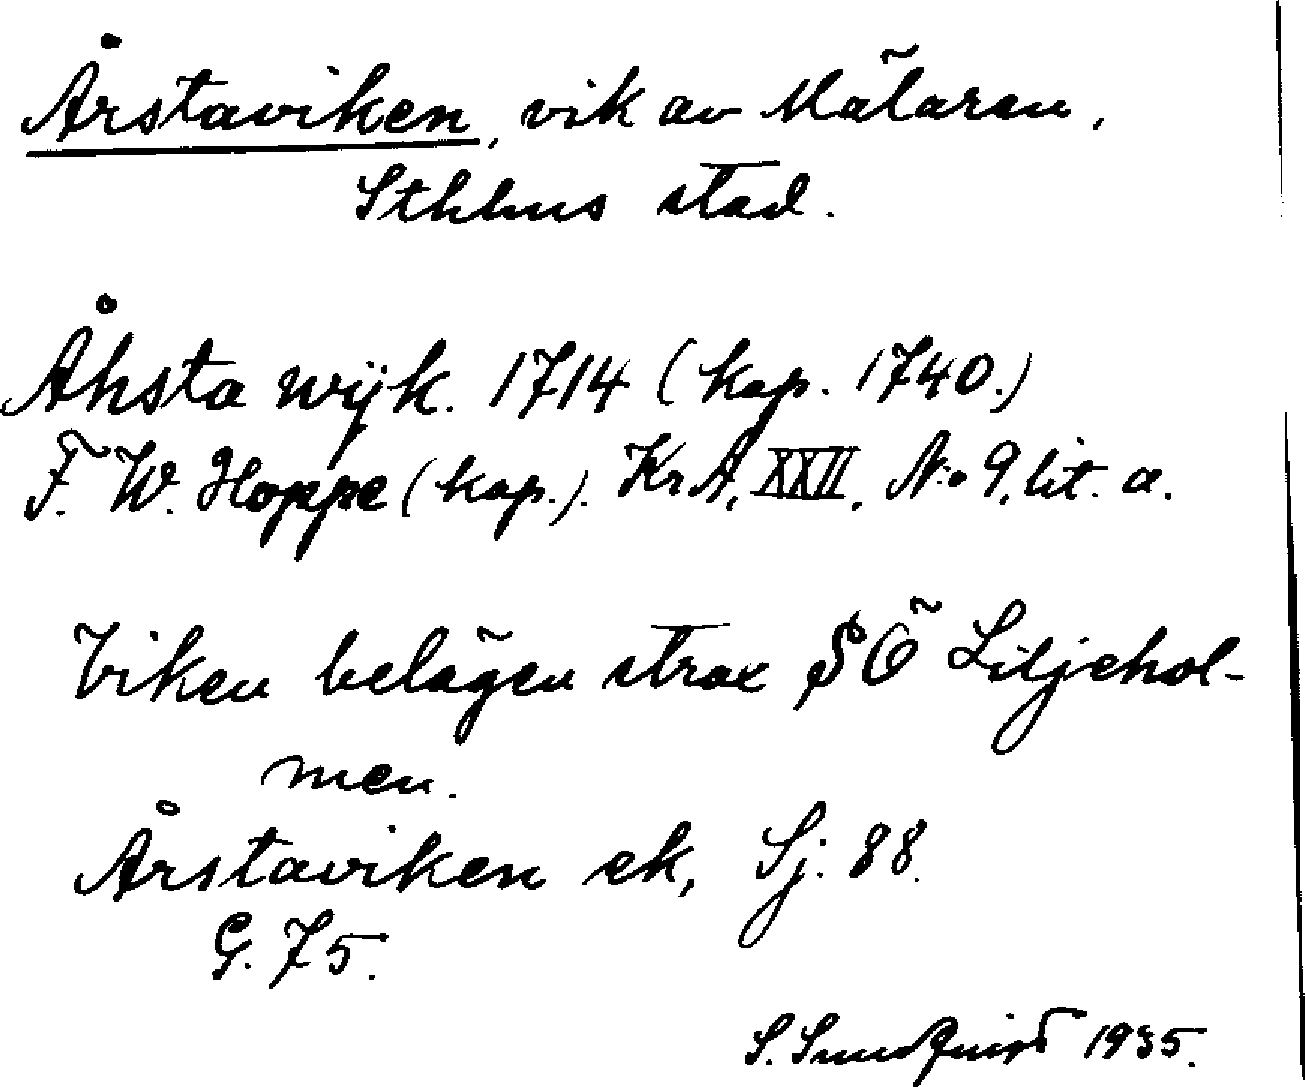 Årstaviken, vik av Mälaren,
Sthlms stad.
Åhsta wijk. 1714 (kop. 1740.)
F. W. Hoppe (kop.). KrA, XXII, N:o 9, lit. a.
Viken belägen strax SÖ Liljehol-
men.
Årstaviken ek, Sj. 88.
G. 75.
S. Sundquist 1935.